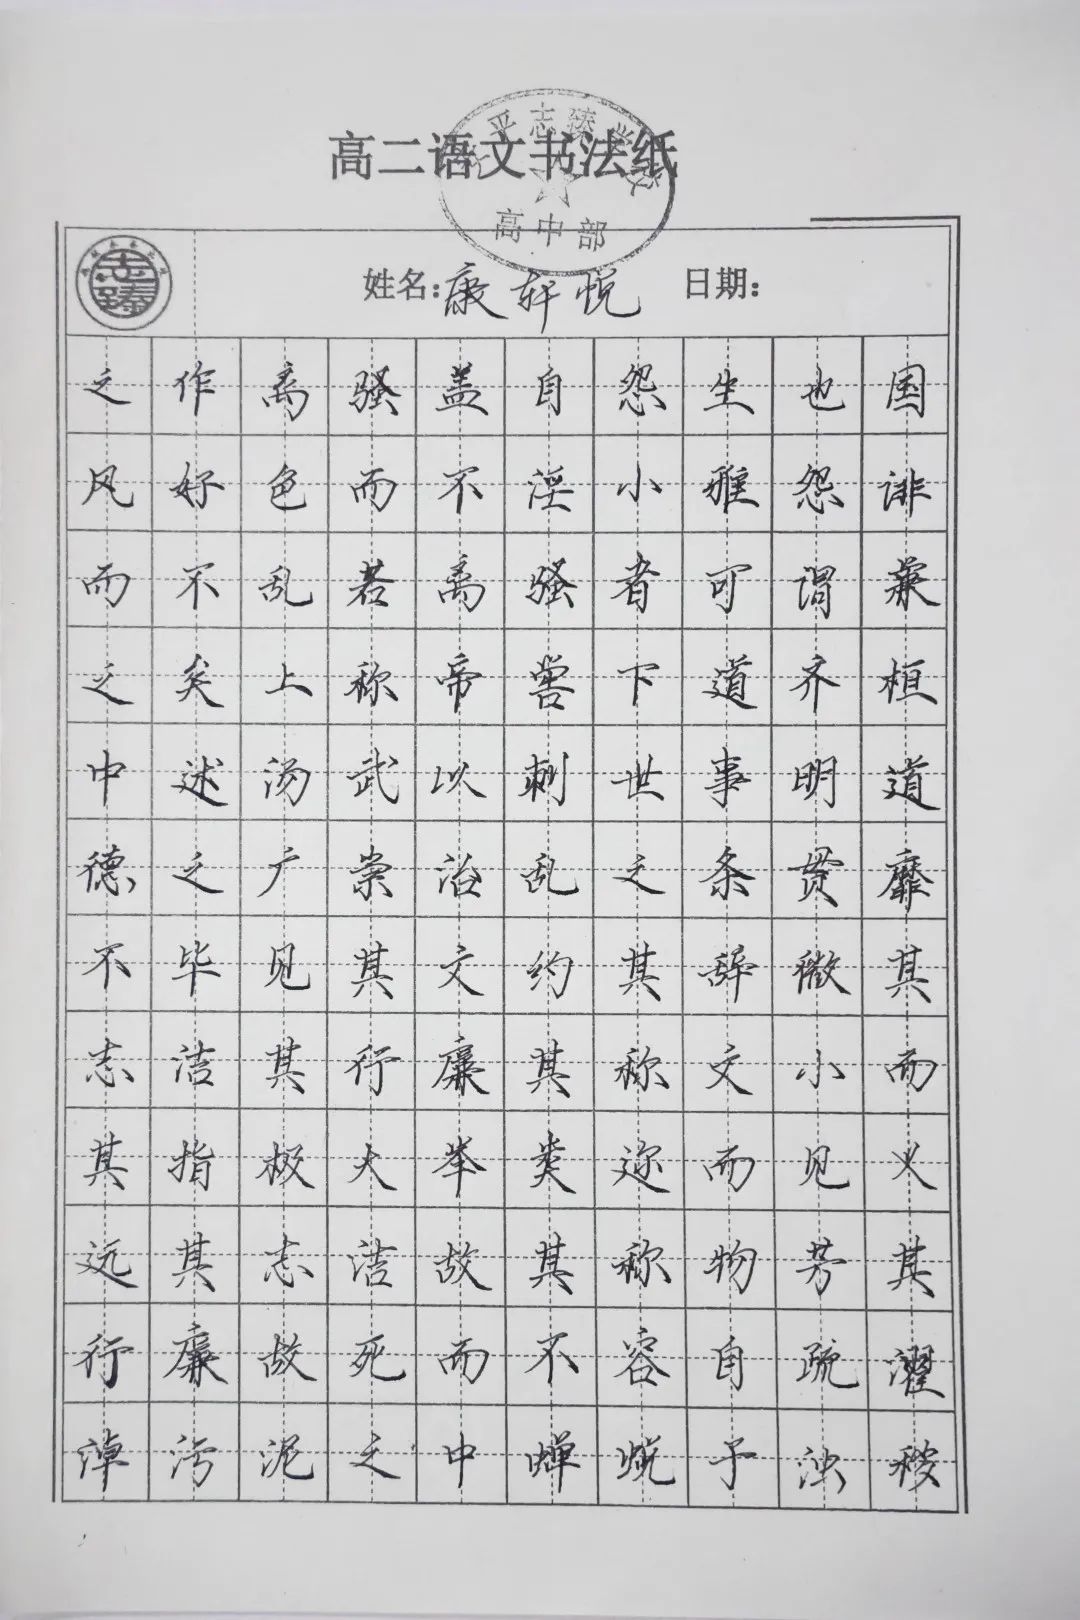 高二语文书法纸
平志臻学校
高中部
志臻
姓名:康轩悦 日期:
之作离骚盖自怨生也国
风好色而不淫小雅怨诽
而不乱若离骚者可谓兼
之矣上称帝喾下道齐桓
中述汤武以刺世事明道
德之广崇治乱之条贯靡
不毕见其文约其辞微其
志洁其行廉其称文小而
其指极大举类迩而见义
远其志洁故其称物芳其
行廉故死而不容自疏濯
淖污泥之中蝉蜕于浊秽